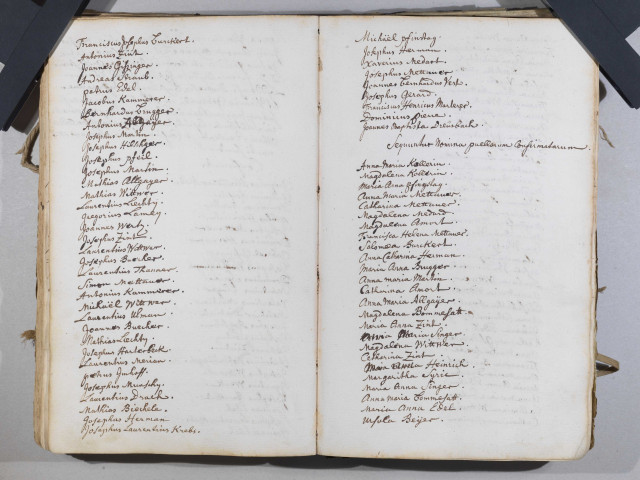 Franciscus Josephus Burckert.
Antonius Zint.
Joannes Gissinger.
Andreas Straub.
patrus Ebel.
Jacobus Kammerer.
Bernhardus brugger.
Antonius Allgäyer.
Josephus Morton.
Josephus
Josephus pfeil.
Josephus Marton.
Mathias Allgayer.
Mathias Wittwer.
Laurentius Liechty.
Gregorius Lamey.
Joannes Werly.
Josephus Zint.
Laurentius Wittwer.
Josephus Buecher
Laurentius Thanner.
Simon Mettauer.
Antonius Kammerer.
Michaël Wittwer.
Laurentius Ulman.
Joannes Buecher.
Mathias Liechty.
Josephus Harterbeck.
Laurentius Merian.
petrus Imhoff.
Josephus
Laurentius Drachs.
Mathias Biechela.
Josephus Herman.
Josephus Laurentius Krebs.
Michaël pfinstag.
Josephus Hermann.
Xaverius Medart.
Josephus Mettauer.
Joannes bernhardus Vert.
Josephus Gerard.
Franciscus Henricus
Dominicus
Joannes Baptista
Sequuntur Nomina puellarum Confirmatarum.
Anna Maria Kollerin.
Magdalena Kollerin.
Maria Anna pfingstag.
Anna Maria Mettauer.
Catharina Mettauer.
Magdalena Medard.
Magdalena Amort.
Francisca Helena Mettauer.
Salomea Burckert.
Anna Catharina Herman.
Maria Anna Brugger.
Anna maria Morton.
Catharina Amort.
Anna Maria Allgäyer.
Magdalena Bommesatt.
Maria Anna Zint.
Maria Singer.
Magdalena Wittwer.
Catharina Zint.
Heinrich.
Margaritha Syrie.
Maria Anna Singer.
Anna Maria Tommesatt.
Maria Anna Ebel.
Ursula Beijer.